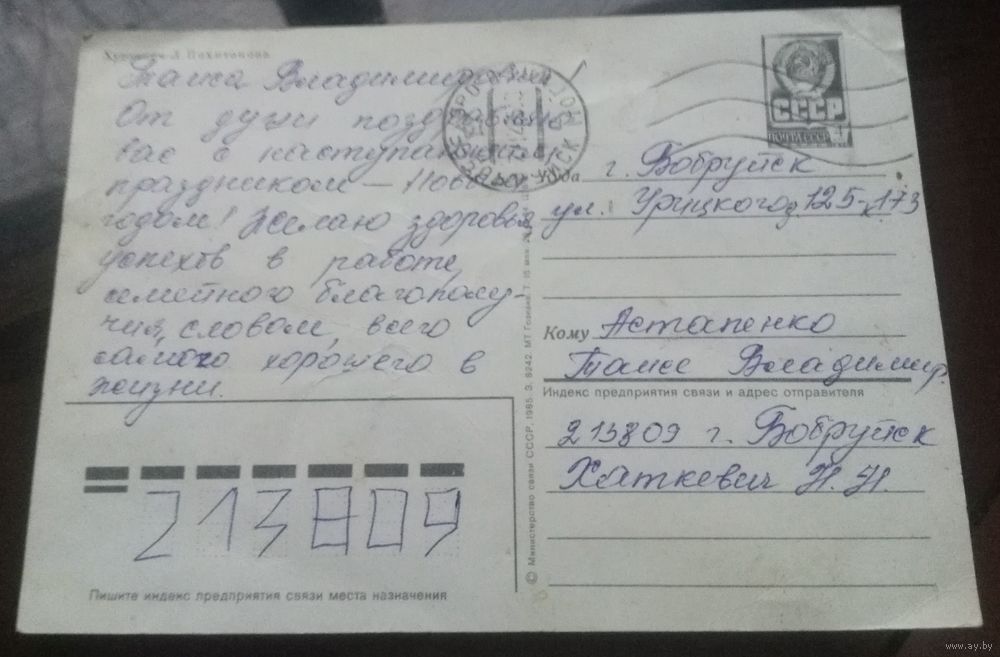 Художник Л. Похитонова
Таиса Владимировна
От души поздравляю
вас с наступающим
праздником — Новым
годом! Желаю здоровья
успехов в работе,
семейного благополу-
чия, словом, всего
самого хорошего в
жизни.
СССР
ПОЧТА СССР
Куда г. Бобруйск
ул. Урицкого д 125-к 173
Кому Астапенко
Таисе Владимир.
Индекс предприятия связи и адрес отправителя
213809 г. Бобруйск
Хаткевич Н. Н.
213809
Пишите индекс предприятия связи места назначения
© Министерство связи СССР, 1985. З. 6242. МТ Гознака.
www.ay.by